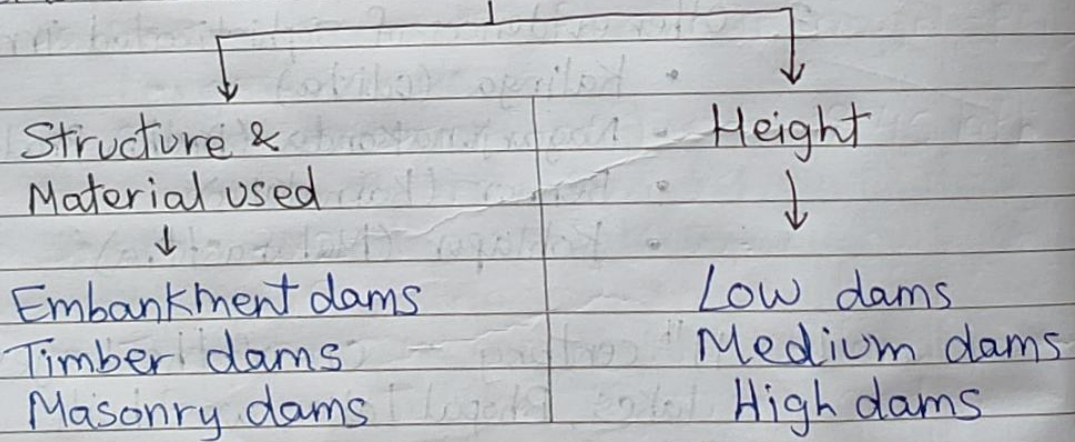 Structure &
Material used
Embankment dams
Timber dams
Masonry dams
Height
Low dams
Medium dams
High dams